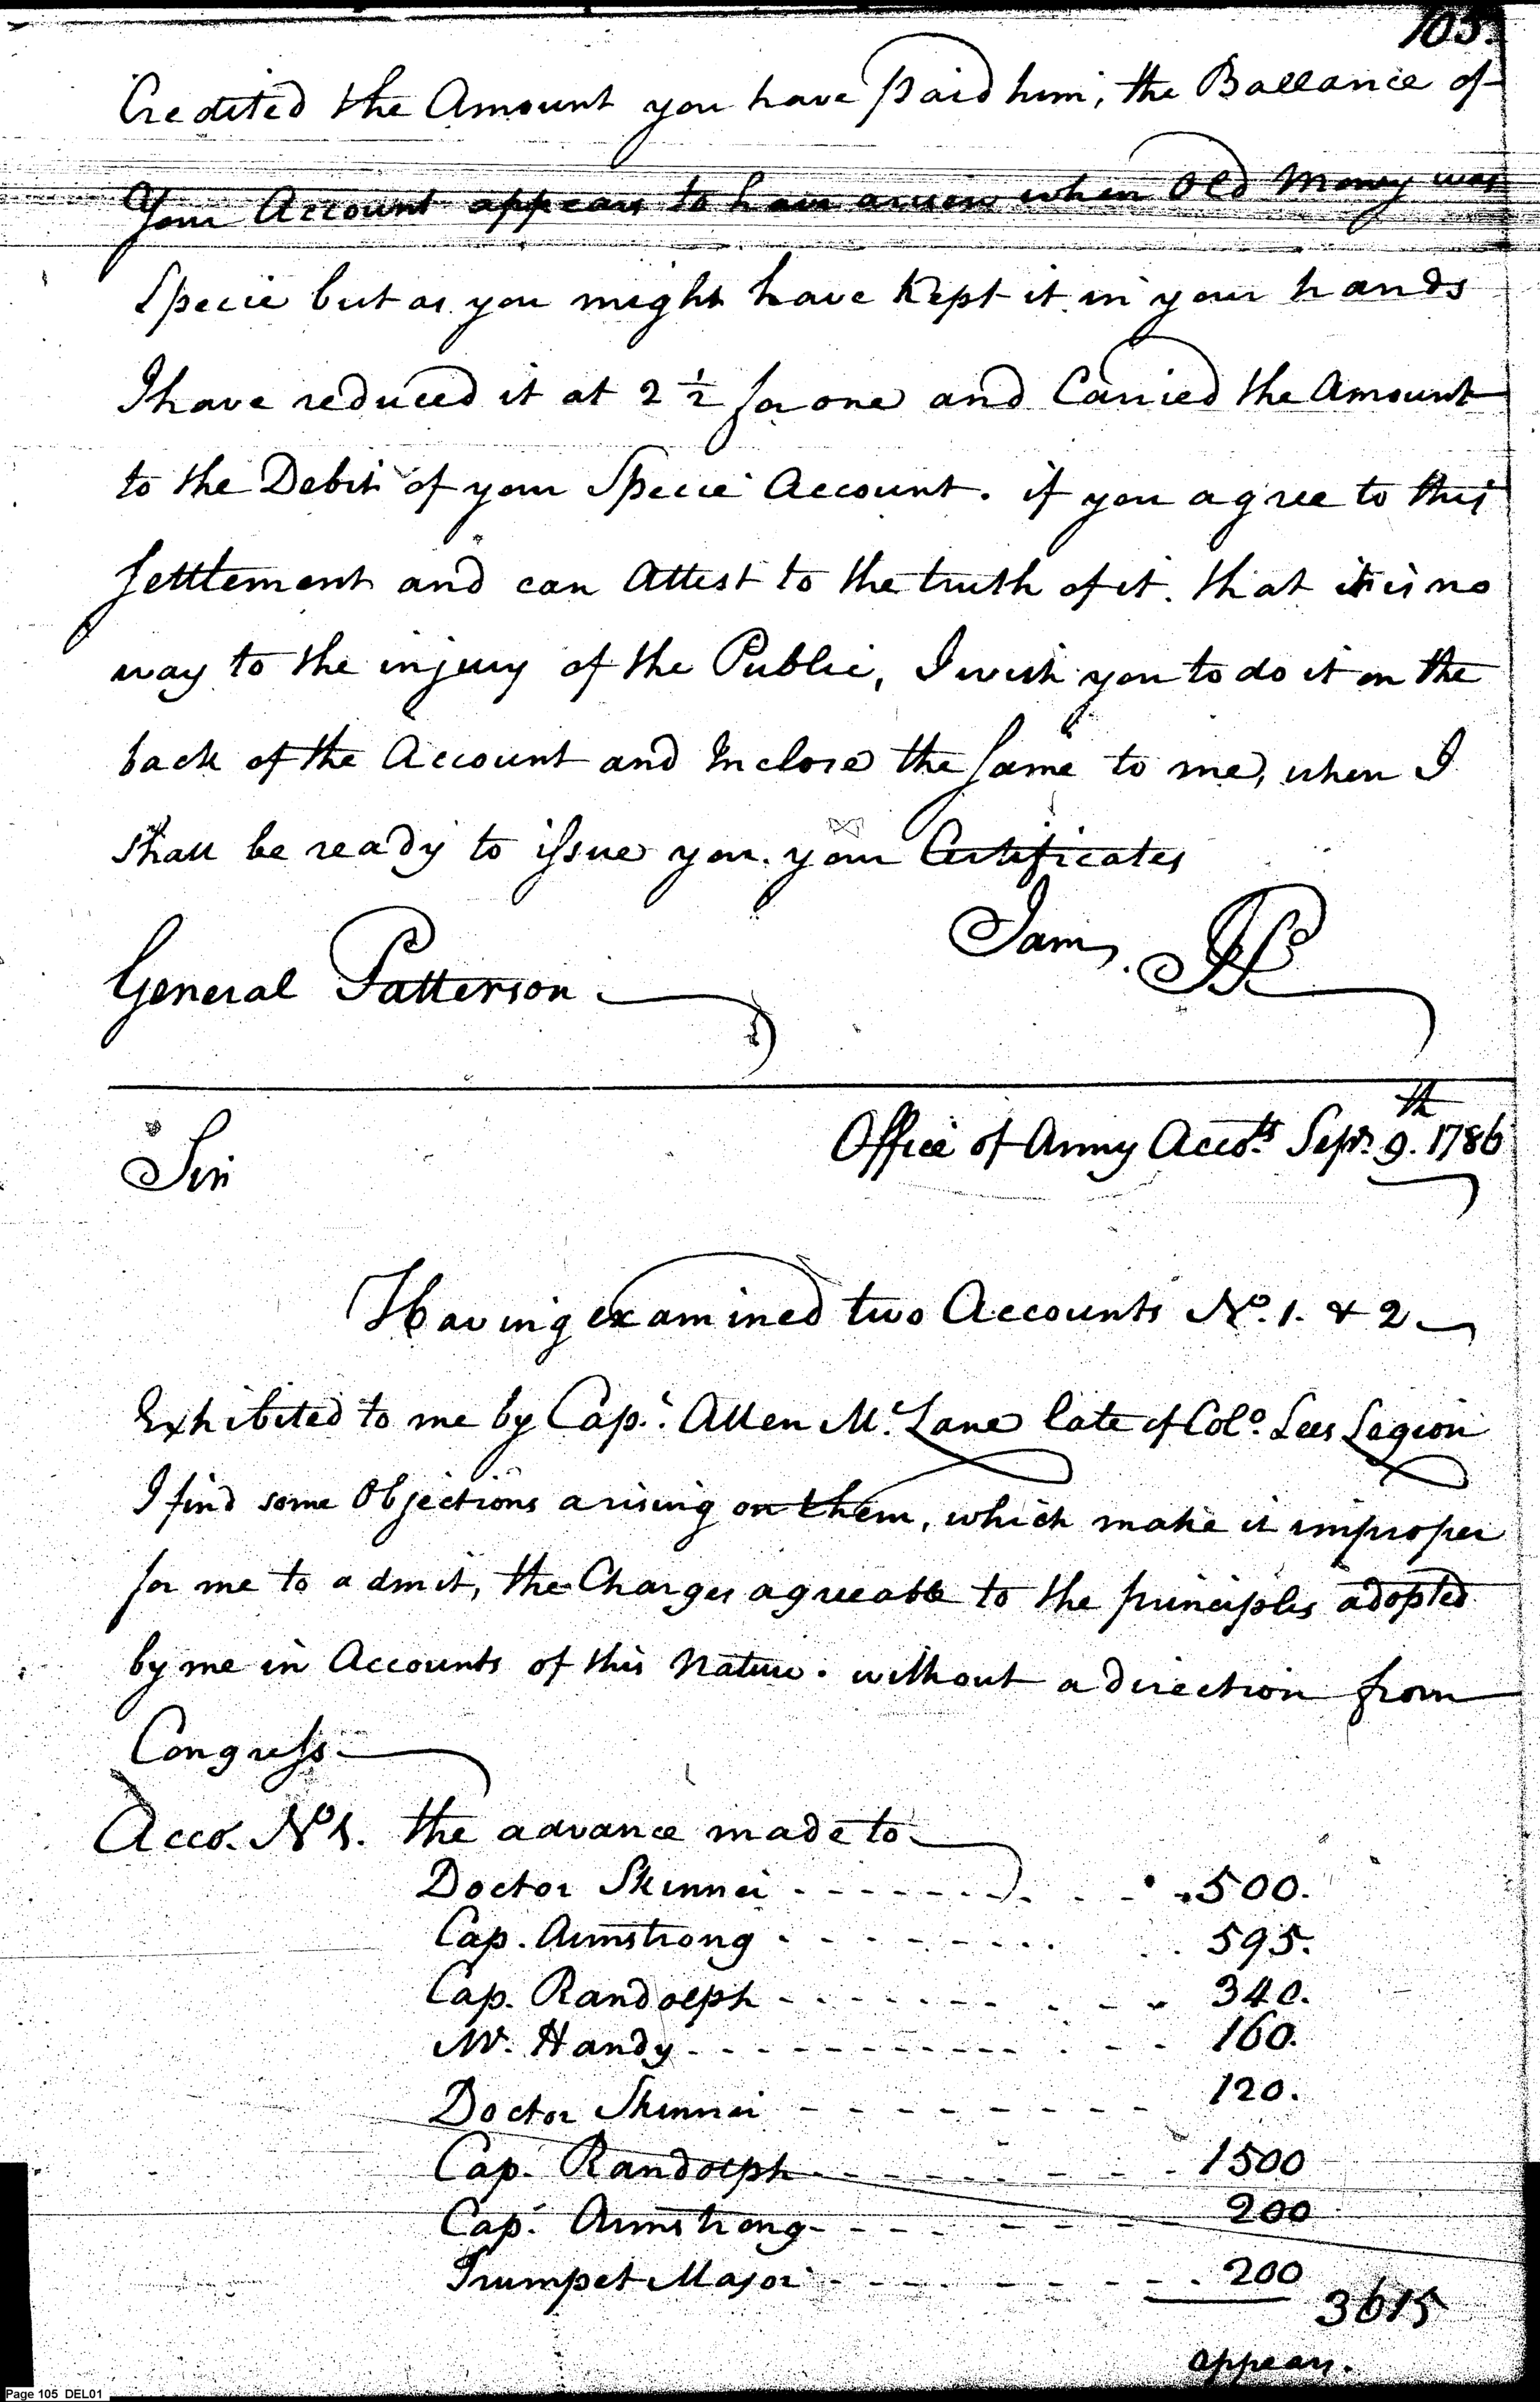 105.
Credited the Amount you have Paid him, the Ballance of
Your Account appears to have arisen when Old Money was
Specie but as you might have Kept it in your hands
I have reduced it at 2 ½ for one and Carried the Amount
to the Debit of your Specie Account. if you agree to this
Settlement and can Attest to the truth of it. that it is no
way to the injury of the Public, I wish you to do it on the
back of the Account and Inclose the Same to me, when I
shall be ready to issue you. your Certificates
I am,
General Patterson
Office of Army Accots. Sepr. 9.th 1786
Sir
Having examined two Accounts No. 1. & 2
Exhibited to me by Cap.t Allen Mc.Lane late of Colo. Lees Legion
I find some Objections arising on them, which make it improper
for me to admit, the Charges agreeable to the principles adopted
by me in Accounts of this Nature. without a direction from
Congress.
Acco. No 1. the advance made to
Doctor Skinner - - - - - - - - 500.
Cap. Armstrong - - - - - - - - 595.
Cap. Randolph - - - - - - - - 340.
Mr. Handy - - - - - - - - 160.
Doctor Skinner - - - - - - - - 120.
Cap. Randolph - - - - - - - - 1500
Cap. Armstrong - - - - - - - - 200
Trumpet Major - - - - - - - - 200
3615
appears.
Page 105 DEL01